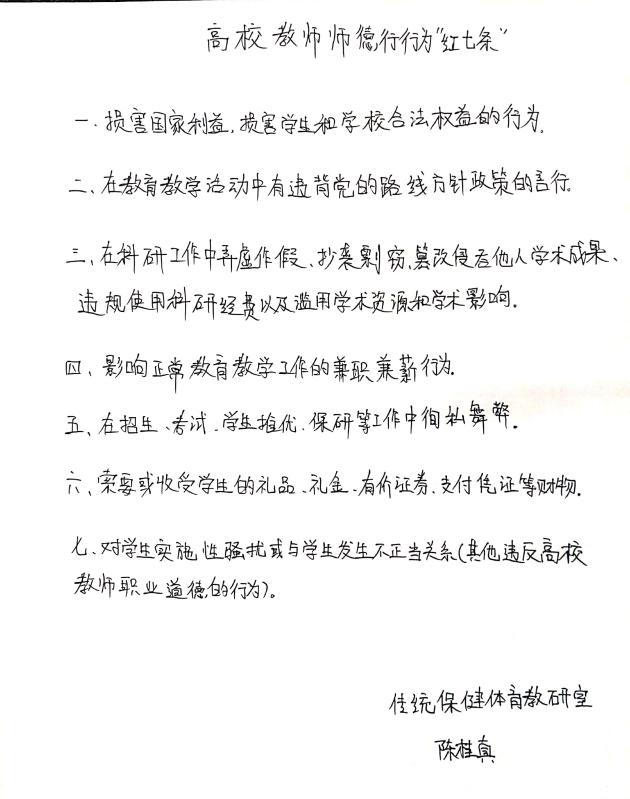 高校教师师德行行为"红七条"
一、损害国家利益,损害学生和学校合法权益的行为.
二、在教育教学活动中有违背党的路线方针政策的言行.
三、在科研工作中弄虚作假、抄袭剽窃、篡改侵占他人学术成果、
违规使用科研经费以及滥用学术资源和学术影响.
四、影响正常教育教学工作的兼职兼薪行为.
五、在招生、考试、学生推优、保研等工作中徇私舞弊.
六、索要或收受学生的礼品、礼金、有价证券、支付凭证等财物.
七、对学生实施性骚扰或与学生发生不正当关系(其他违反高校
教师职业道德的行为)。
传统保健体育教研室
陈桂真